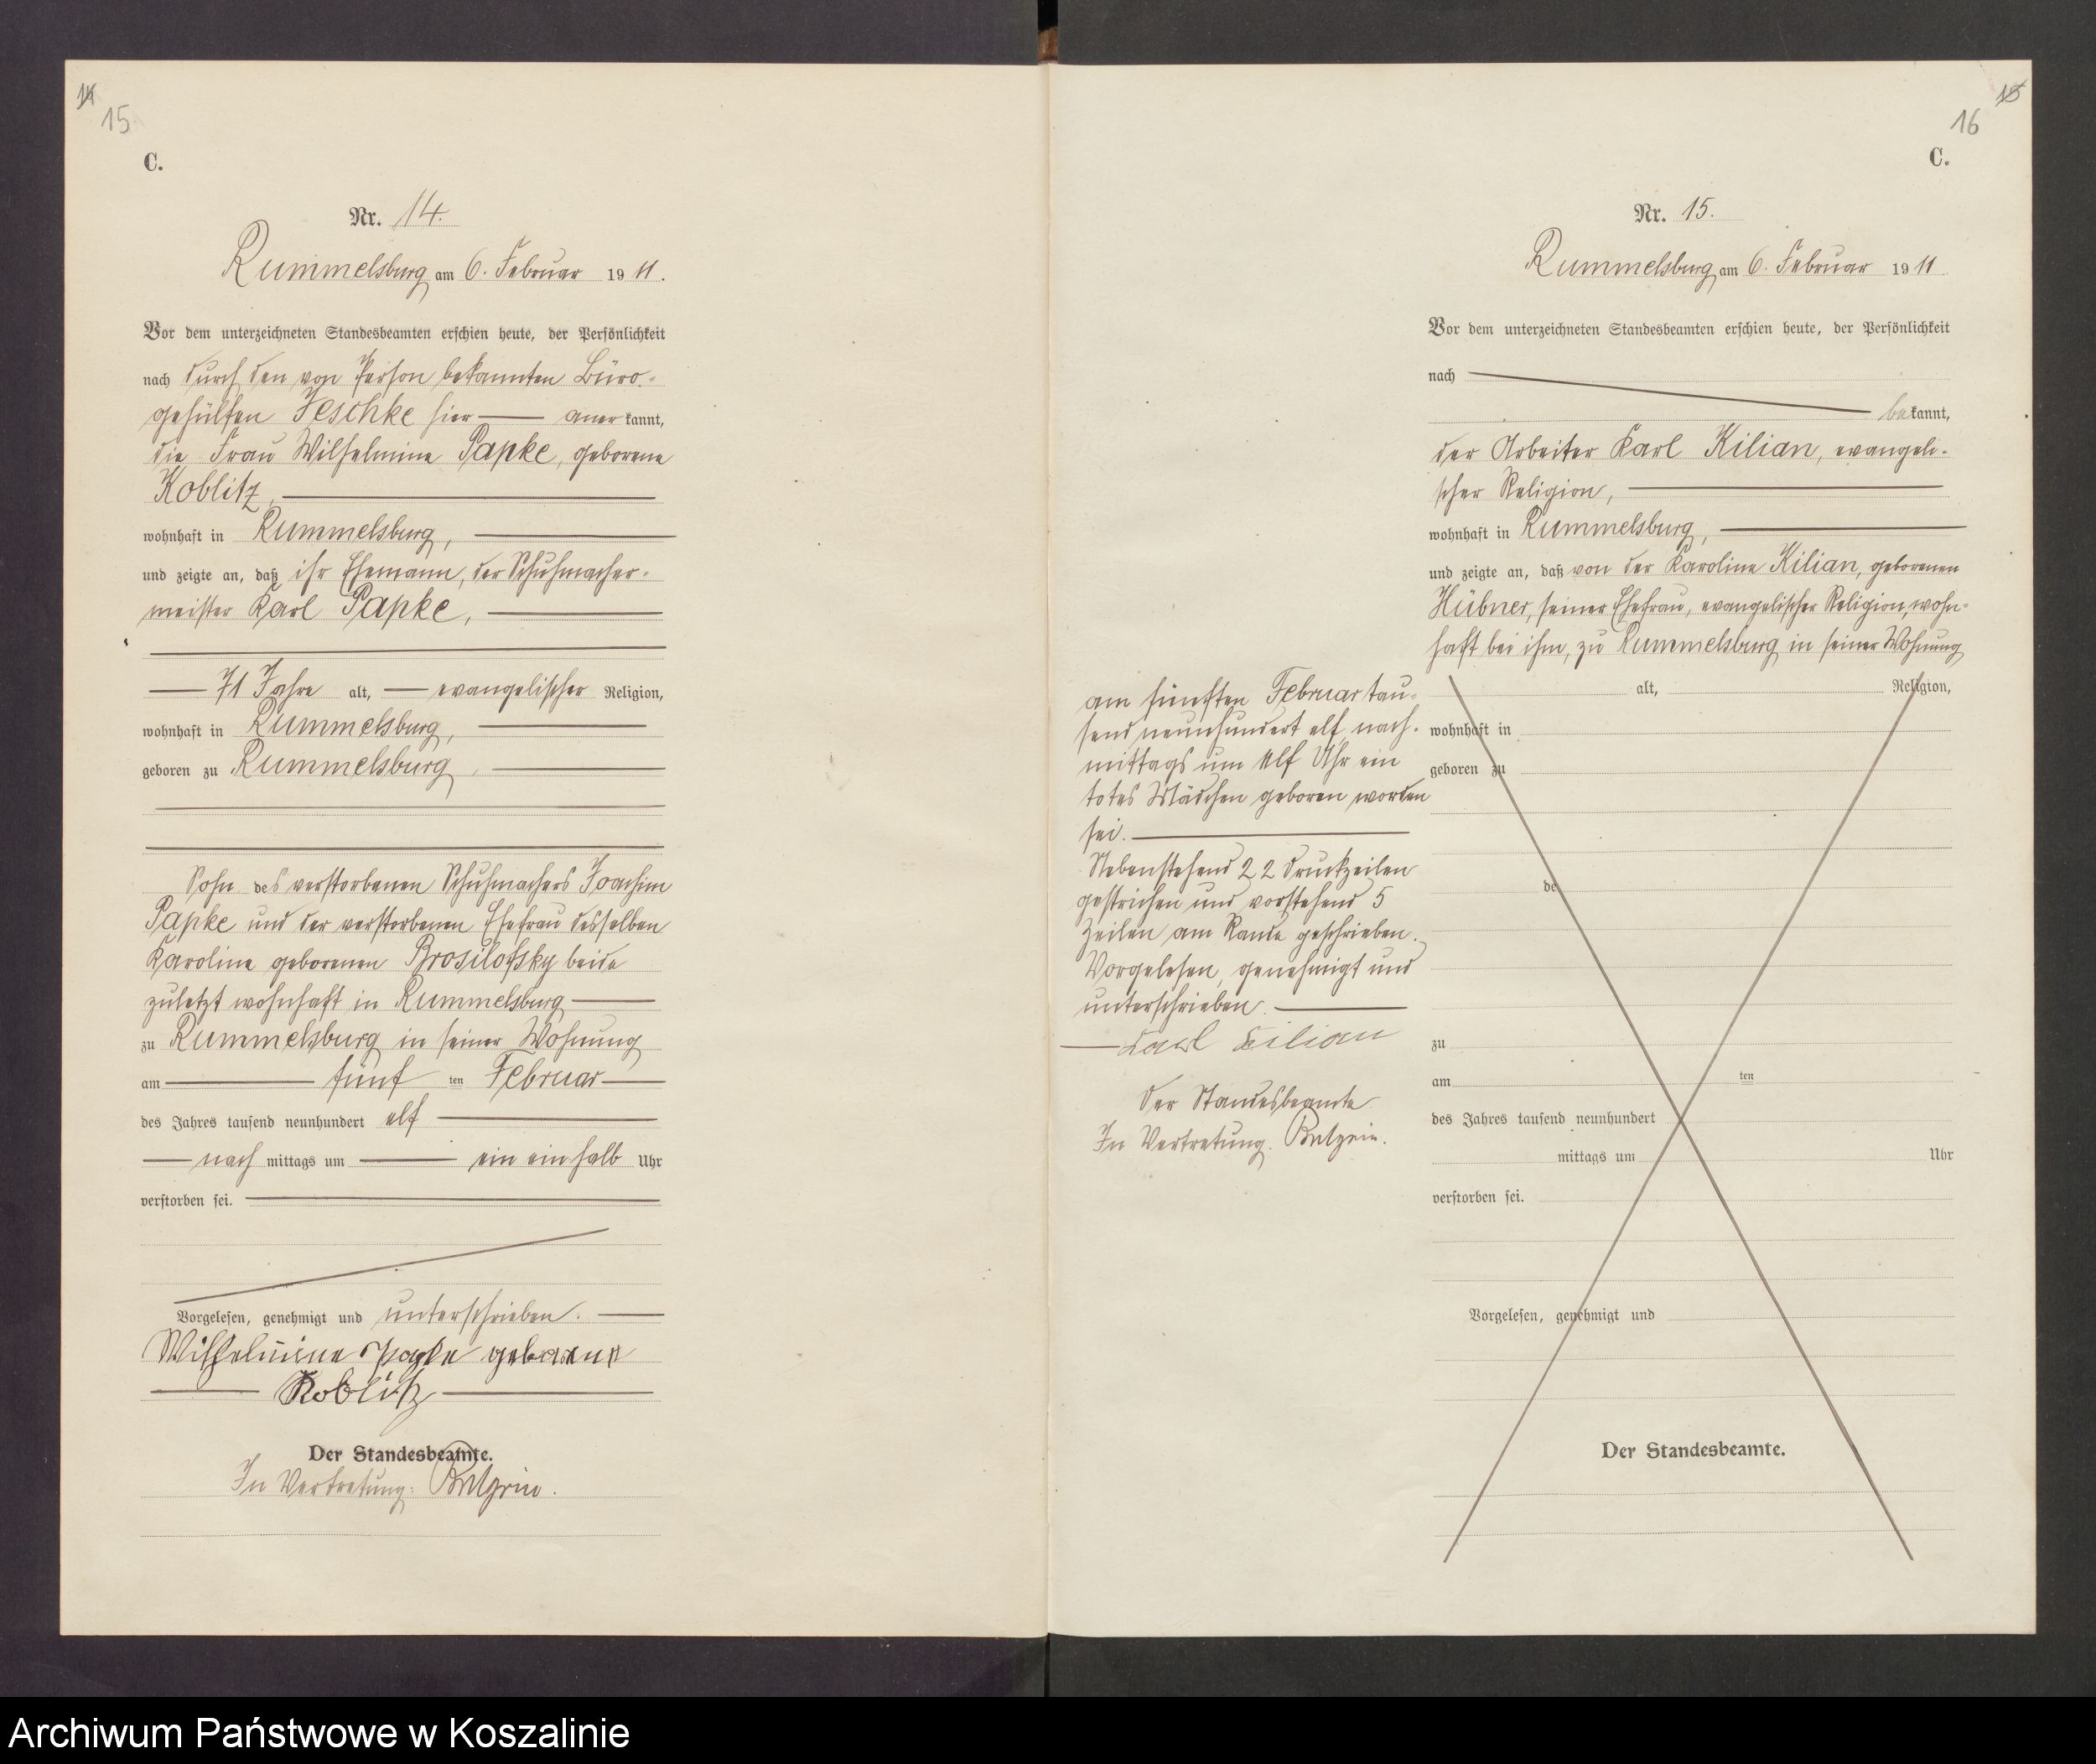 14
15
C.
Nr. 14.
Rummelsburg am 6. Februar 1911.
Vor dem unterzeichneten Standesbeamten erschien heute, der Persönlichkeit
nach durch den von Person bekannten Büro-
gehülfen Jeschke hier — anerkannt,
die Frau Wilhelmine Papke, geborene
Koblitz,
wohnhaft in Rummelsburg,
und zeigte an, daß ihr Ehemann, der Schuhmacher-
meister Karl Papke,
71 Jahre alt, evangelischer Religion,
wohnhaft in Rummelsburg,
geboren zu Rummelsburg,
Sohn des verstorbenen Schuhmachers Joachim
Papke und der verstorbenen Ehefrau desselben
Karoline geborenen Brosilofsky beide
zuletzt wohnhaft in Rummelsburg
zu Rummelsburg in seiner Wohnung
am fünften Februar
des Jahres tausend neunhundert elf
nachmittags um ein ein halb Uhr
verstorben sei.
Vorgelesen, genehmigt und unterschrieben.
Wilhelmine Papke geborene
Koblitz
Der Standesbeamte.
In Vertretung:
15
16
C.
Nr. 15.
Rummelsburg am 6. Februar 1911
Vor dem unterzeichneten Standesbeamten erschien heute, der Persönlichkeit
nach
bekannt,
der Arbeiter Karl Kilian, evangeli-
scher Religion,
wohnhaft in Rummelsburg,
und zeigte an, daß von der Karoline Kilian, geborenen
Hübner, seiner Ehefrau, evangelischer Religion, wohn-
haft bei ihm, zu Rummelsburg in seiner Wohnung
am fünften Februar tau-
send neunhundert elf nach-
mittags um elf Uhr ein
totes Mädchen geboren worden
sei.
Nebenstehend 22 Druckzeilen
gestrichen und vorstehend 5
Zeilen am Rande geschrieben.
Vorgelesen, genehmigt und
unterschrieben.
Karl Kilian
Der Standesbeamte
In Vertretung:
alt, Religion,
wohnhaft in
geboren zu
de
zu
am ten
des Jahres tausend neunhundert
mittags um Uhr
verstorben sei.
Vorgelesen, genehmigt und
Der Standesbeamte.
Archiwum Państwowe w Koszalinie